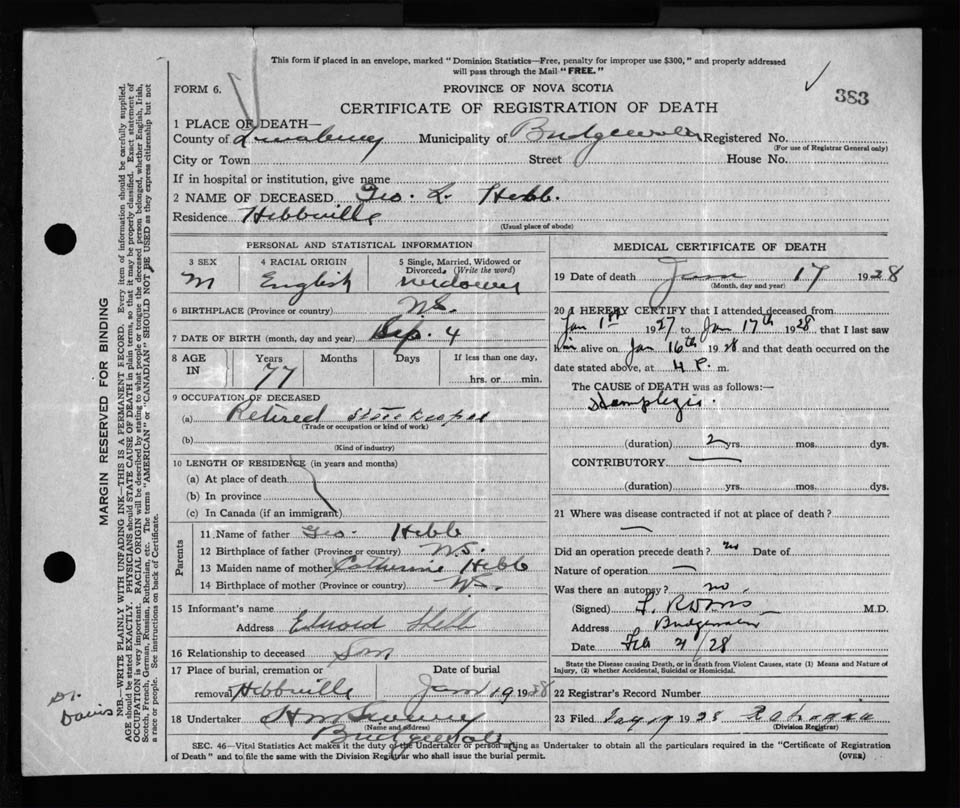 This form if placed in an envelope, marked "Dominion Statistics—Free, penalty for improper use $300," and properly addressed
will pass through the Mail "FREE."
FORM 6.
PROVINCE OF NOVA SCOTIA
383
CERTIFICATE OF REGISTRATION OF DEATH
1 PLACE OF DEATH—
County of Lunenburg Municipality of Bridgewater Registered No.
(For use of Registrar General only)
City or Town Street House No.
If in hospital or institution, give name
2 NAME OF DECEASED Geo. L. Hebb.
Residence Hebbville
(Usual place of abode)
PERSONAL AND STATISTICAL INFORMATION
3 SEX 4 RACIAL ORIGIN 5 Single, Married, Widowed or Divorced. (Write the word)
M English widower
6 BIRTHPLACE (Province or country) N.S.
7 DATE OF BIRTH (month, day and year) Sep. 4
8 AGE IN Years Months Days If less than one day,
77 hrs. or min.
9 OCCUPATION OF DECEASED
(a) Retired Storekeeper
(Trade or occupation or kind of work)
(b)
(Kind of industry)
10 LENGTH OF RESIDENCE (in years and months)
(a) At place of death
(b) In province
(c) In Canada (if an immigrant)
Parents
11 Name of father Geo. Hebb
12 Birthplace of father (Province or country) N.S.
13 Maiden name of mother Catherine Hebb
14 Birthplace of mother (Province or country) N.S.
15 Informant's name
Address Edward Hebb
16 Relationship to deceased Son
17 Place of burial, cremation or Date of burial
removal Hebbville Jan 19 1928
18 Undertaker
(Name and address)
Bridgewater
MEDICAL CERTIFICATE OF DEATH
19 Date of death Jan 17 1928
(Month, day and year)
20 I HEREBY CERTIFY that I attended deceased from
Jan 1st 1927 to Jan 17th 1928, that I last saw
him alive on Jan 16th 1928 and that death occurred on the
date stated above, at 4 P. m.
The CAUSE of DEATH was as follows:—
Hemplegia.
(duration) 2 yrs. mos. dys.
CONTRIBUTORY —
(duration) yrs. mos. dys.
21 Where was disease contracted if not at place of death?
—
Did an operation precede death? no Date of
Nature of operation —
Was there an autopsy? no.
(Signed) M.D.
Address Bridgewater
Date Feb 4/28
State the Disease causing Death, or in death from Violent Causes, state (1) Means and Nature of
Injury, (2) whether Accidental, Suicidal or Homicidal.
22 Registrar's Record Number
23 Filed 1928
(Division Registrar)
SEC. 46—Vital Statistics Act makes it the duty of the Undertaker or person acting as Undertaker to obtain all the particulars required in the "Certificate of Registration
of Death" and to file the same with the Division Registrar who shall issue the burial permit. (OVER)
MARGIN RESERVED FOR BINDING
N.B.—WRITE PLAINLY WITH UNFADING INK—THIS IS A PERMANENT RECORD. Every item of information should be carefully supplied.
AGE should be stated EXACTLY. PHYSICIANS should STATE CAUSE OF DEATH in plain terms, so that it may be properly classified. Exact statement of
OCCUPATION is very important. RACIAL ORIGIN will be described by stating to what people or tongue the deceased person belonged, whether English, Irish,
Scotch, French, German, Russian, Ruthenian, etc. The terms "AMERICAN" or "CANADIAN" SHOULD NOT BE USED as they express citizenship but not
a race or people. See instructions on back of Certificate.
Dr.
Davis